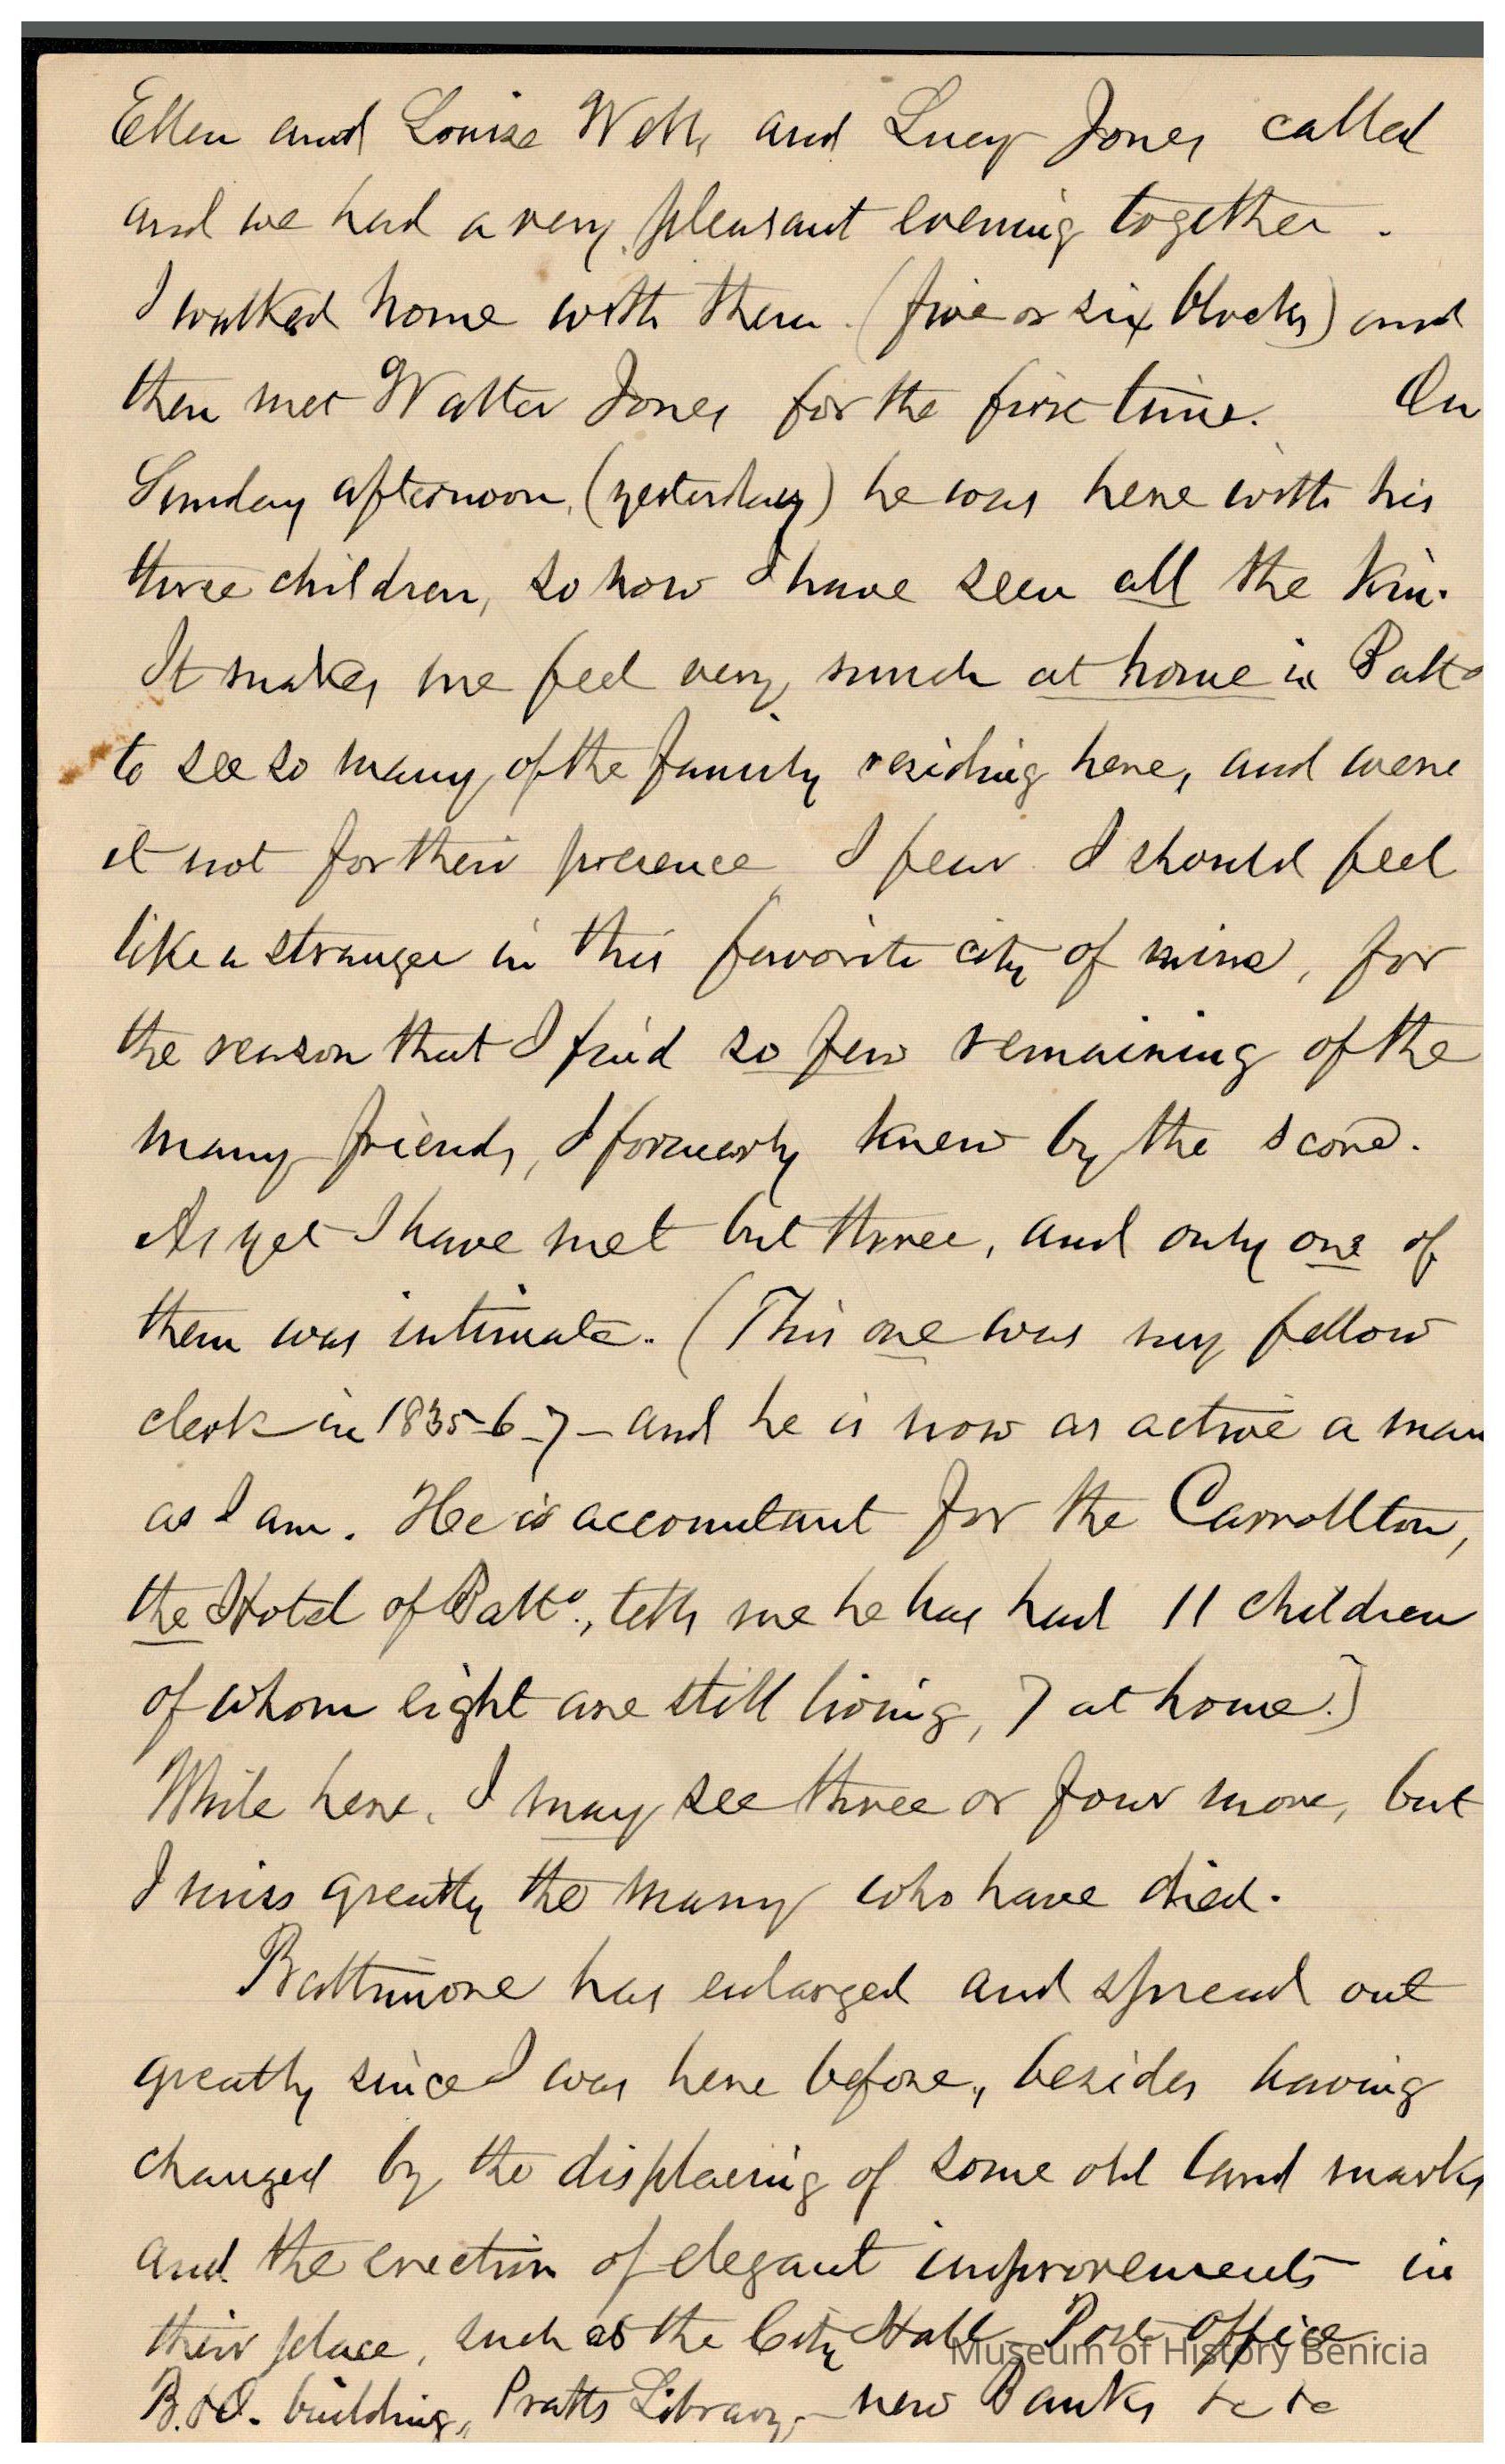 Ellen and Louise Wells and Lucy Jones called
and we had a very pleasant evening together.
I walked home with them (five or six blocks) and
then met Walter Jones for the first time. On
Sunday afternoon, (yesterday) he was here with his
three children, so now I have seen all the kin.
It makes me feel very much at home in Balto
to see so many of the family residing here, and were
it not for their presence, I fear I should feel
like a stranger in this favorite city of mine, for
the reason that I find so few remaining of the
many friends, I formerly knew by the score.
As yet I have met but three, and only one of
them was intimate. (This one was my fellow
clerk in 1835-6-7 - and he is now as active a man
as I am. He is accountant for the Carrollton,
the Hotel of Balto., tells me he has had 11 children
of whom eight are still living, 7 at home.)
While here, I may see three or four more, but
I miss greatly the many who have died.
Baltimore has enlarged and spread out
greatly since I was here before, besides having
changed by the displacing of some old land marks
and the erection of elegant improvements in
their place, such as the City Hall Post Office
B.&O. building, Pratts Library, - new Banks &c &c
Museum of History Benicia